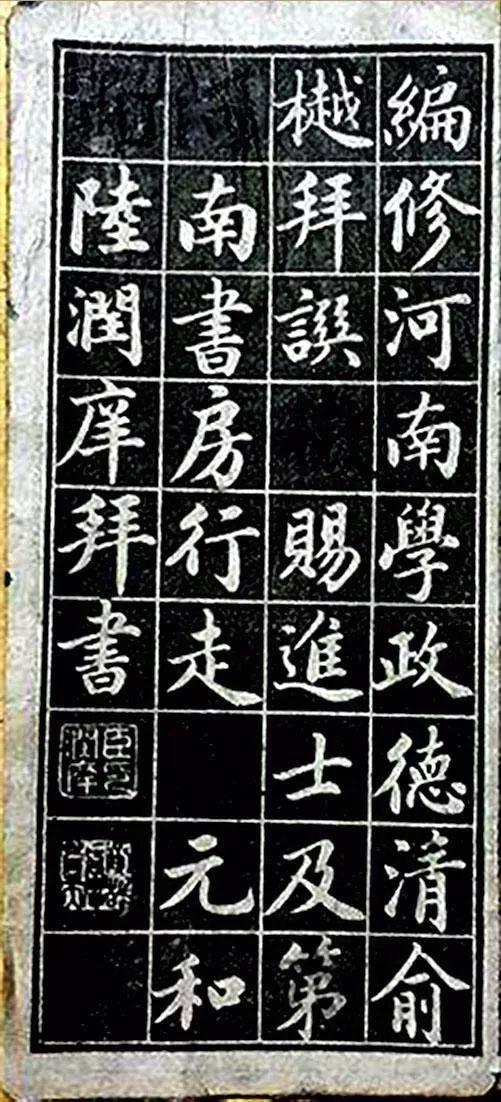 編修河南學政德清俞
樾拜譔 賜進士及第
南書房行走 元和
陸潤庠拜書